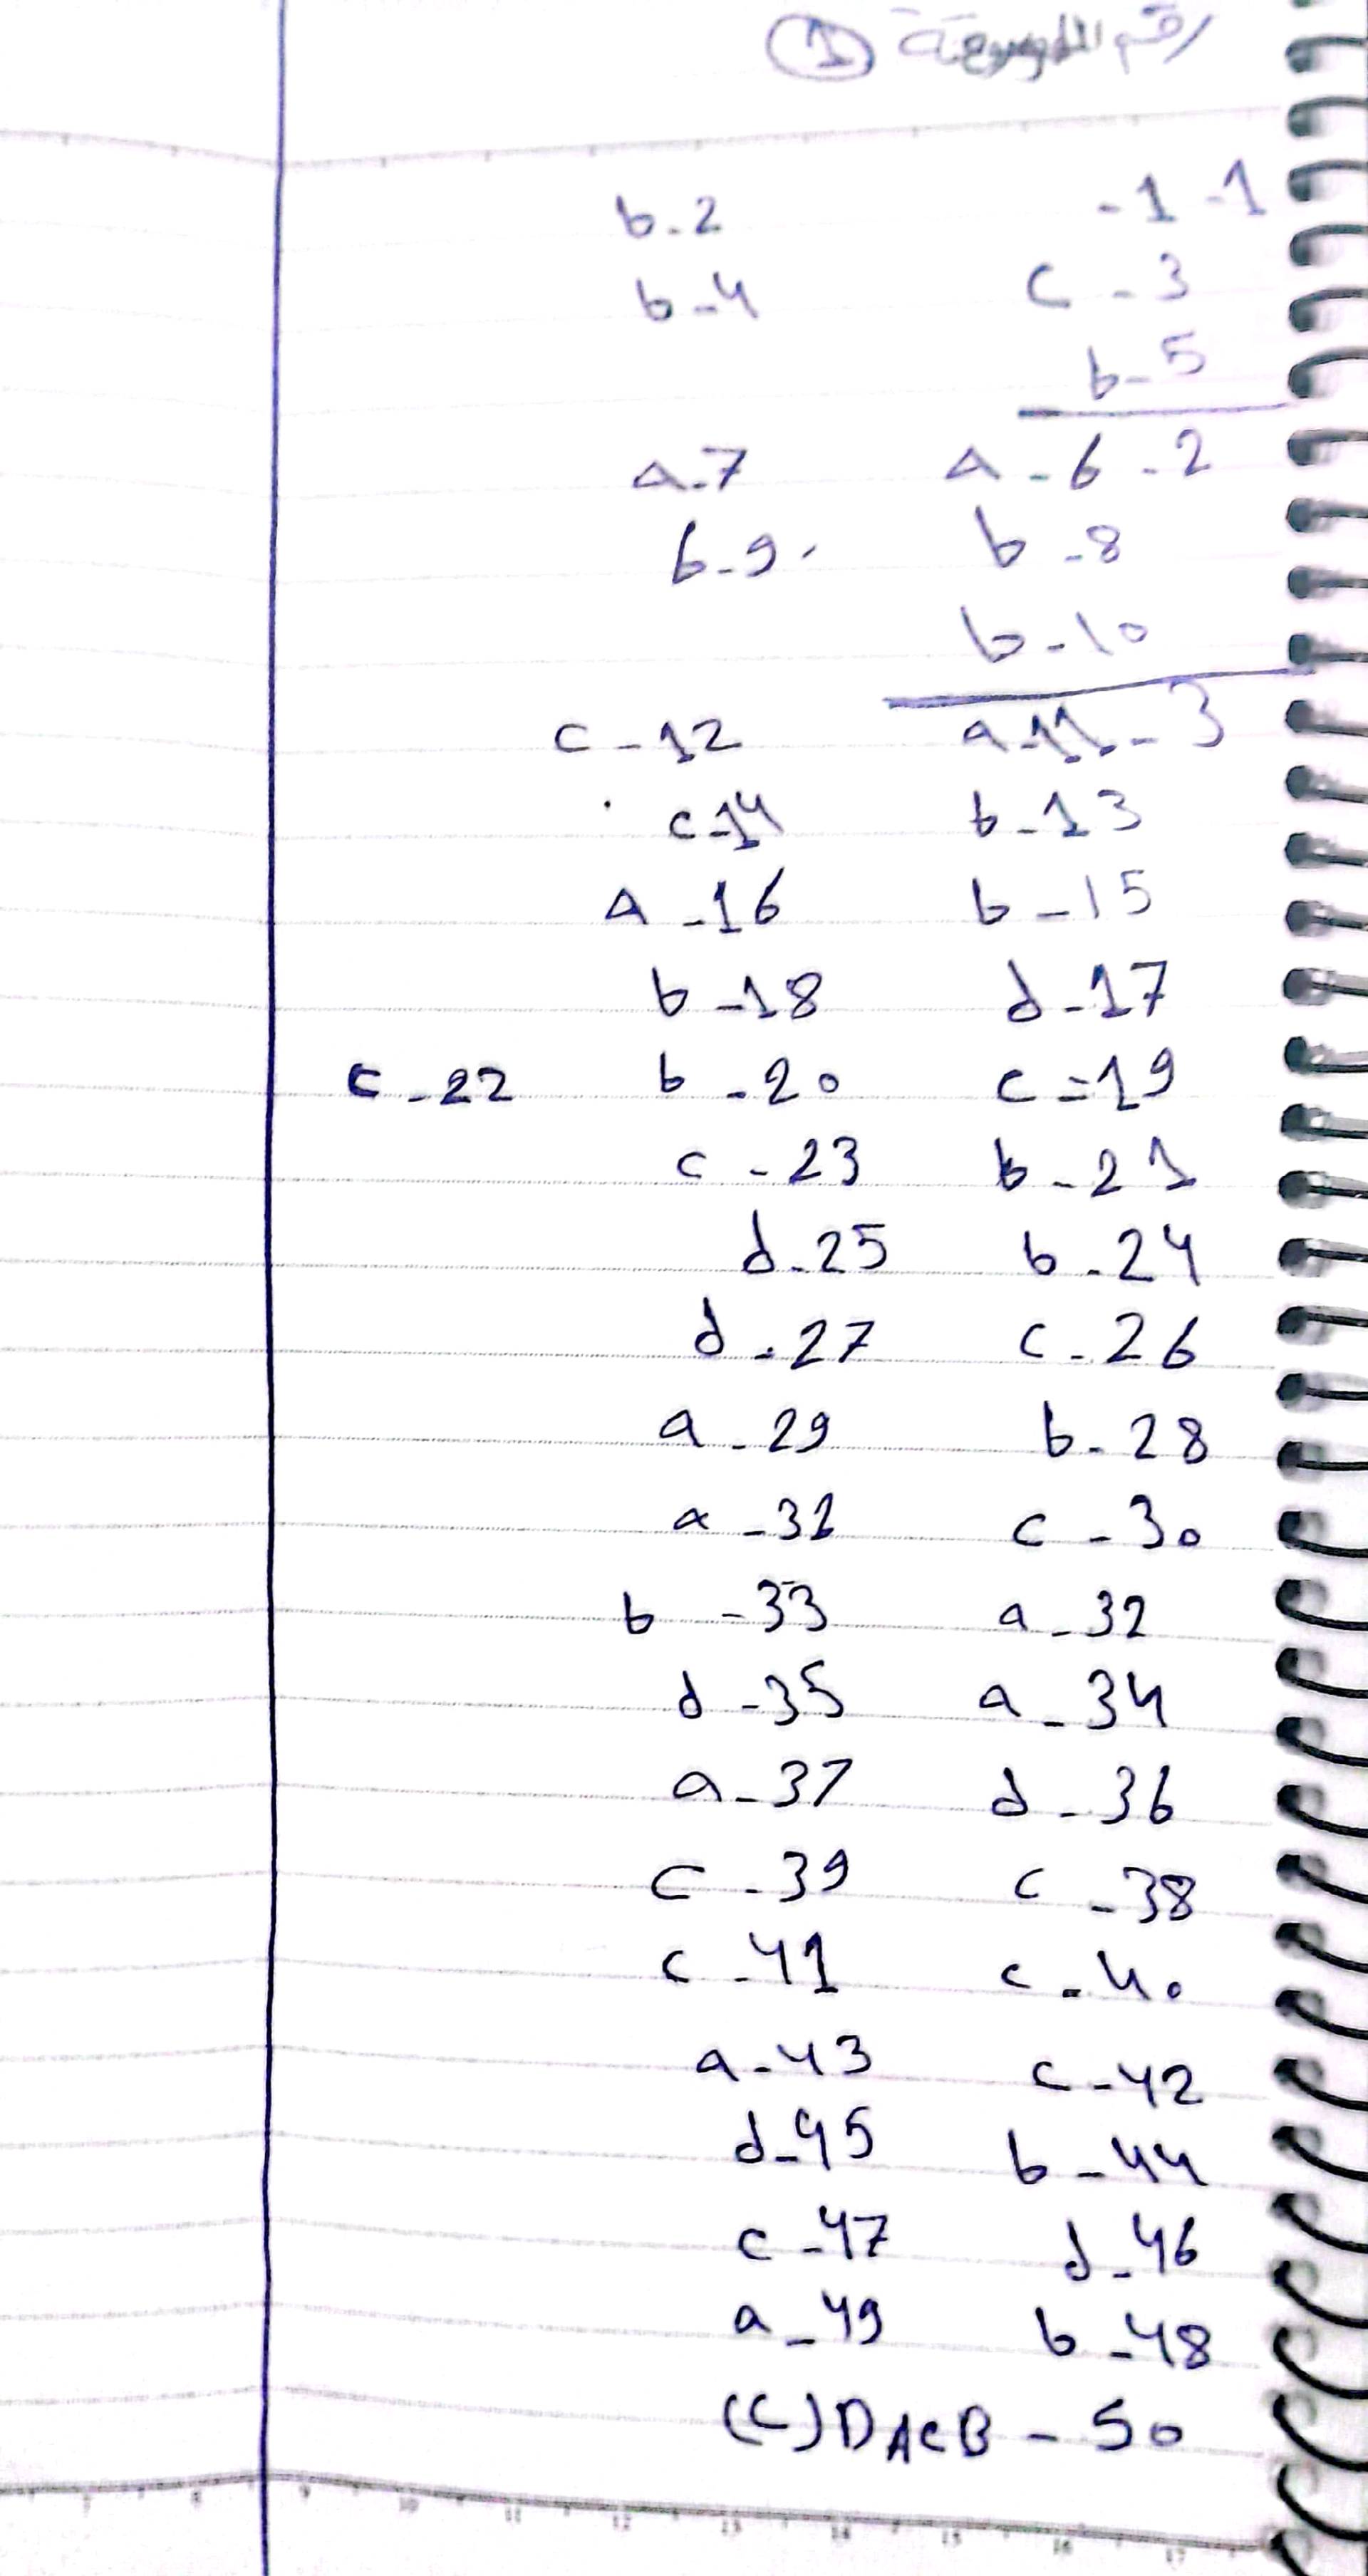 رقم المجموعة (1)
1- 1- b-2
3- c b-4
5- b
2- 6- a a-7
8- b b-9
10- b
3- 11- a c-12
13- b c-14
15- b a-16
17- d b-18
19- c b-20 c-22
21- b c-23
24- b d-25
26- c d-27
28- b a-29
30- c a-31
32- a b-33
34- a d-35
36- d a-37
38- c c-39
40- c c-41
42- c a-43
44- b d-45
46- d c-47
48- b a-49
50- DACB (C)